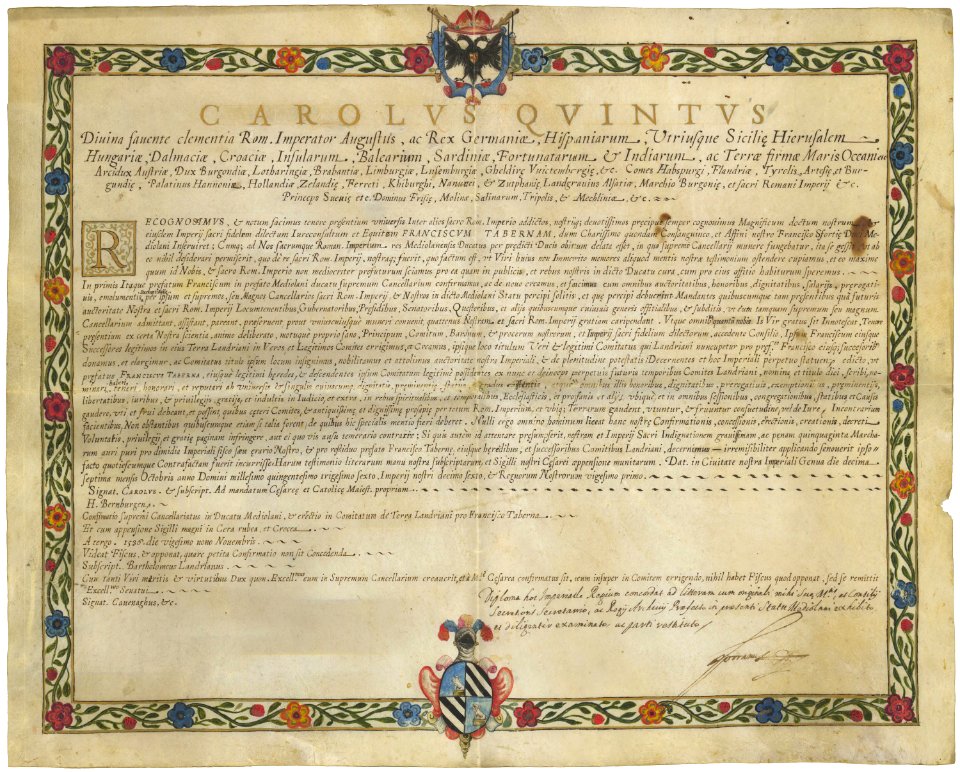 CAROLVS QVINTVS
Divina fauente clementia Rom. Imperator Augustus, ac Rex Germaniæ, Hispaniarum, Vtriusque Sicilię Hierusalem
Hungariæ, Dalmaciæ, Croaciæ, Insularum, Balearium, Sardiniæ, Fortunatarum & Indiarum, ac Terræ firmæ Maris Oceani
Arcidux Austriæ, Dux Burgondiæ, Lotharingiæ, Brabantiæ, Limburgiæ, Lusemburgiæ, Gheldrię, Vuictembergię, &c. Comes Habspurgi, Flandriæ, Tyrolis, Artesię, et Bur-
gundię, Palatinus Hannoniæ, Hollandiæ Zelandię, Ferreti, Khiburghi, Namurei, & Zutphanię, Landgrauius Alsatiæ, Marchio Burgonię, et sacri Romani Imperij &c.
Princeps Sueuię etc. Dominus Frisię, Molinæ, Salinarum, Tripolis, & Mechlinia &c.
RECOGNOSIMVS, & notum facimus tenore presentium vniuersis Inter alios sacro Rom. Imperio addictos, nostrisq; deuotissimos precipue semper cognouimus Magnificum doctum nostrum, &
eiusdem Imperij sacri fidelem dilectum Iureconsultum et Equitem FRANCISCVM TABERNAM, dum Charissimo quondam Consanguineo, et Affini nostro Francisco Sfortię Duci Me-
diolani Inseruiret; Cumq; ad Nos sacrumque Roman. Imperium res Mediolanensis Ducatus per predicti Ducis obitum delata esset, in qua supremo Cancellarij munere fungebatur, ita se gessit ut ab
eo nihil desiderari permiserit, quo de re sacri Rom. Imperij, nostraq; fuerit, quo factum est, vt Viri huius non Immerito memores aliquod mentis nostræ testimonium ostendere cupiamus, et eo maxime
quum id Nobis, & sacro Rom. Imperio non mediocriter profuturum sciamus pro ea quam in publicis, et rebus nostris in dicto Ducatu cura, cum pro eius offitio habiturum speremus.
In primis Itaque prefatum Franciscum in prefato Mediolani ducatu supremum Cancellarium confirmamus, ac de nouo creamus, et facimus cum omnibus auctoritatibus, honoribus, dignitatibus, salarijs, prerogati-
uis, emolumentis, per ipsum et supremos, seu Magnos Cancellarios sacri Rom. Imperij, & Nostros in dicto Mediolani Statu percipi solitis, et que percipi debuerint Mandantes quibuscumque tam presentibus quã futuris
auctoritate Nostra et sacri Rom. Imperij Locumtenentibus, Gubernatoribus, Presidibus, Senatoribus, Questoribus, et alijs quibuscumque cuiusuis generis offitialibus, & subditis, vt eum tamquam supremum seu magnum
Cancellarium admittant, assistant, pareant, preseruent prout vniuersalusque muneri conuenit quatenus Nostram, et sacri Rom. Imperij gratiam caripendant.
Successores legitimos in eius Terra Landriani in Veros et Legitimos Comites errigimus, et Creamus, ipsique loco titulum Veri & legitimi Comitatus qui Landriani nuncupetur
donamus, et elargimur, ac Comitatus titulo ipsum locum insignimus, nobilitamus et attolimus auctoritate nostra Imperiali, & de plenitudine potestatis
prefatus FRANCISCVS TABERNA, eiusque legitimi heredes, & descendentes ipsum Comitatum legitimo possidentes ex nunc et deinceps perpetuis futuris temporibus Comites Landriani, nomine, et titulo dici, scribi, no-
minari, teneri, honorari, et reputari ab Vniuersis & singulis
libertatibus, iuribus, & priuilegijs, gratijs, et indultis in Iudicio, et extra, in rebus spiritualibus, et temporalibus, Ecclesiasticis, et prophanis
gaudere, vti et frui debeant, et possint, quibus ceteri Comites,
facientibus, Non obstantibus quibuscumque etiam si talia forent, de quibus hic specialis mentio fieri deberet. Nulli ergo omnino hominum liceat hanc nostræ Confirmationis, concessionis, erectionis, creationis, decreti,
Voluntatis, priuilegij, et gratię paginam infringere, aut ei quo vis ausu temerario contraire: Si quis autem id attentare presumpserit, nostram et Imperij Sacri Indignationem grauissimam, ac penam quinquaginta Marcha-
rum auri puri pro dimidia Imperiali fisco seu erario Nostro, & pro residuo prefato Francisco Taberne, eiusque heredibus, et successoribus Comitibus Landriani, decernimus irremisibiliter applicando
facto quotiescumque Contrafactum fuerit incurrisse. Harum testimonio literarum manu nostra subscriptarum, et Sigilli nostri Cesarei appensione munitarum. Dat. in Ciuitate nostra Imperiali Genua die decima
septima mensis Octobris anno Domini millesimo quingentesimo trigesimo sexto, Imperij nostri decimo sexto, & Regnorum Nostrorum vigesimo primo.
Signat. CAROLVS. & subscript. Ad mandatum Cesareę et Catolicę Maiest. proprium
H. Bernburgen.
Confirmatio supremi Cancellariatus in Ducatu Mediolani, & erectio in Comitatum de Terra Landriani pro Francisco Taberna
Et cum appensione Sigilli magni in Cera rubea, et Crocea
A tergo. 1536. die vigesimo nono Nouembris.
Videat Fiscus, & opponat, quare petita Confirmatio non sit Concedenda
Subscript. Bartholomeus Landrianus
Cum tanti Viri meritis & virtutibus Dux quon. Excell.mus eum in Supremum Cancellarium creauerit, et a M. Cesarea confirmatus sit, eum insuper in Comitem errigendo, nihil habet Fiscus quod opponat, sed se remittit
Excell. Senatui
Signat. Cauenaghus, &c.
Diploma hoc Imperiale Regium concordat ad litteram cum originali
ac Regij Archiuij Prefecto in presenti Statu Mediolani exhibito
et diligenter examinato ac parti restituto